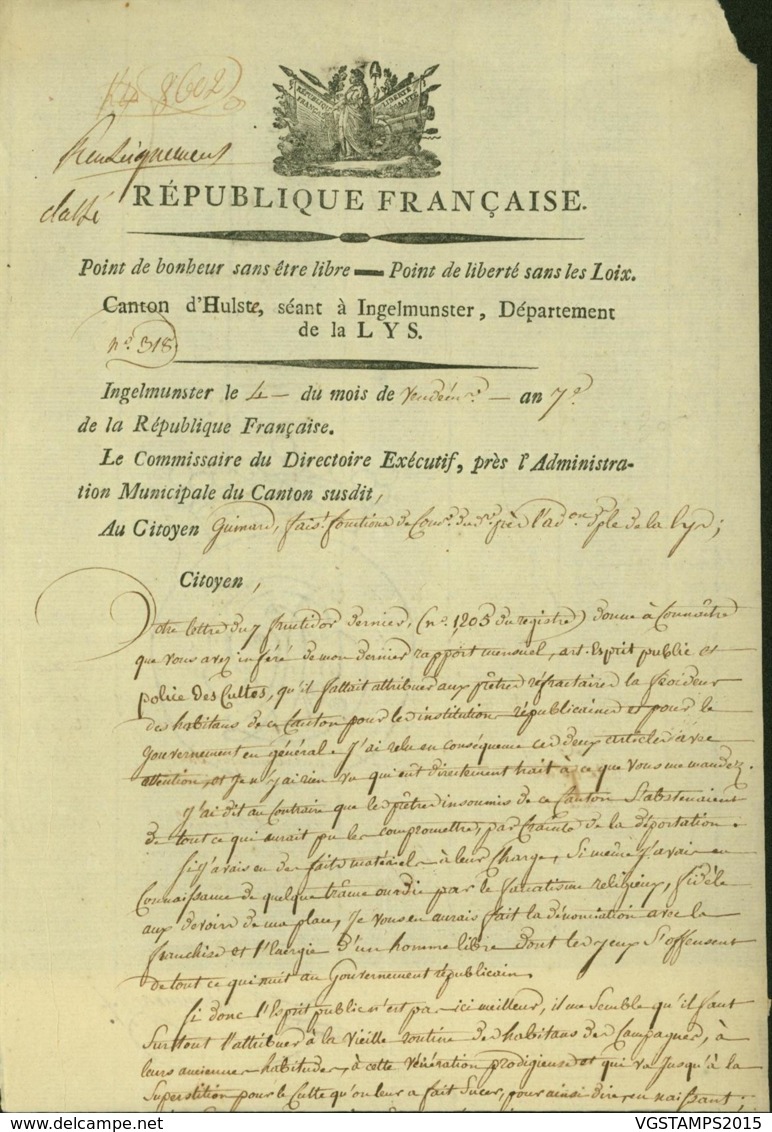 8602
Renseignement
classé
RÉPUBLIQUE FRANÇAISE
LIBERTÉ ÉGALITÉ
RÉPUBLIQUE FRANÇAISE.
Point de bonheur sans être libre — Point de liberté sans les Loix.
Canton d'Hulste, séant à Ingelmunster, Département
de la LYS.
n.° 318
Ingelmunster le 4 — du mois de Vendém.re — an 7e
de la République Française.
Le Commissaire du Directoire Exécutif, près l'Administra-
tion Municipale du Canton susdit,
Au Citoyen Guimard, fais.t fonctions de Com.re du d.re près l'ad.on d.ple de la lys;
Citoyen,
Votre lettre du 7 fructidor dernier, (n.° 1205 du registre) donne à Connoître
que vous avez inféré de mon dernier rapport mensuel, art. Esprit public et
police des Cultes, qu'il fallait attribuer aux prêtres réfractaires la froideur
des habitans de ce Canton pour les institutions républicaines et pour le
Gouvernement en général. J'ai relu en conséquence ces deux articles avec
attention, et Je n'y ai rien vu qui eut directement trait à ce que vous me mandez.
J'ai dit au Contraire que les prêtres insoumis de ce Canton S'abstenaient
de tout ce qui aurait pu les compromettre, par Crainte de la déportation.
Si J'avais eu des faits matériels à leur Charge, Si même J'avais eu
Connaissance de quelque trâme ourdie par le fanatisme religieux, fidèle
aux devoirs de ma place, Je vous en aurais fait la dénonciation avec la
franchise et l'Energie d'un homme libre dont les yeux S'offensent
de tout ce qui nuit au Gouvernement républicain.
Si donc l'Esprit public n'est pas ici meilleur, il me Semble qu'il faut
Surtout l'attribuer à la Vieille routine des habitans des Campagnes, à
leurs anciennes habitudes, à cette Vénération prodigieuse et qui va Jusqu'à la
Superstition pour le Culte qu'on leur a fait Sucer, pour ainsi dire en naissant;
VGSTAMPS2015